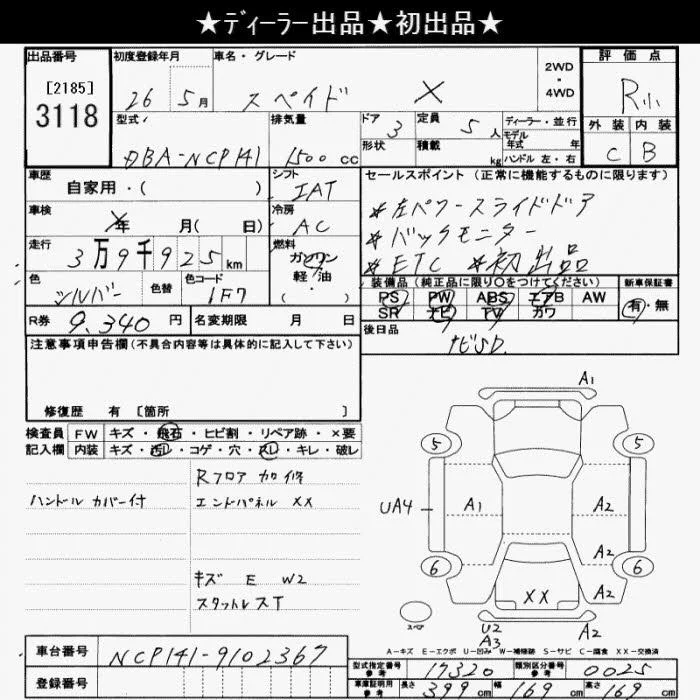 ★ディーラー出品★初出品★
出品番号 初度登録年月 車名・グレード 2WD・4WD 評価点
[2185]
3118
26 5月 スペイド X R小
型式 排気量 ドア 3 定員 5人 ディーラー・並行 外装 内装
モデル年式 年
DBA-NCP141 1500cc 形状 積載 kg ハンドル 左・右 C B
車歴 シフト セールスポイント (正常に機能するものに限ります)
自家用・( ) IAT
車検 冷房 ＊左パワースライドドア
年 月( 日) AC ＊バックモニター
走行 燃料 ＊ETC ＊初出品
3万9千925km ガソリン
軽油
・( )
色 色替 色コード 装備品 (純正品に限り○をつけてください) 新車保証書
シルバー 1F7 PS PW ABS エアB AW 有・無
SR ナビ TV カワ
R券 9,340円 名変期限 月 日 後日品
ナビSD.
注意事項申告欄(不具合内容等は具体的に記入して下さい)
修復歴 有 [箇所 ]
検査員 FW キズ・飛石・ヒビ割・リペア跡・×要
記入欄 内装 キズ・汚レ・コゲ・穴・スレ・キレ・破レ
Rフロア カロ修
ハンドル カバー付 エンドパネル XX
キズ E W2
スタットレスT
A1
5 5
UA4 A1 A2
A2
6 6
XX A2
スペア
U2 A2
A3
A-キズ E-エクボ U-凹み W-補修跡 S-サビ C-腐食 XX-交換済
車台番号 NCP141-9102367
登録番号
型式指定番号 参考 17320 類別区分番号 参考 0025
車庫証明用 参考 長さ 399cm 幅 169cm 高さ 169cm